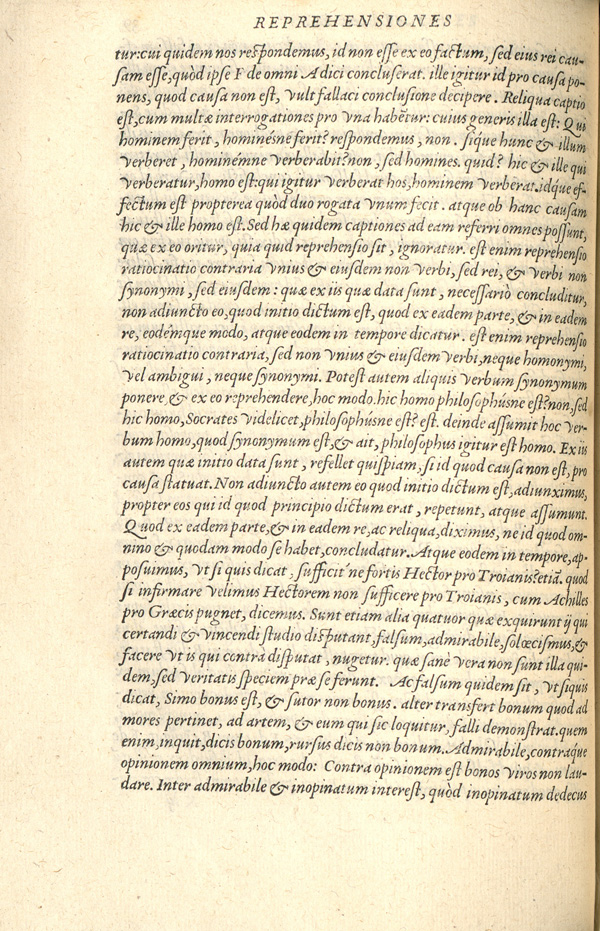 REPREHENSIONES
tur:cui quidem nos respondemus, id non esse ex eo factum, sed eius rei cau-
sam esse, quòd ipse F de omni A dici concluserat. ille igitur id pro causa po-
nens, quod causa non est, vult fallaci conclusione decipere. Reliqua captio
est, cum multæ interrogationes pro vna habẽtur: cuius generis illa est: Qui
hominem ferit, hominésne ferit? respondemus, non. sique hunc & illum
verberet, hominémne verberabit? non, sed homines. quid? hic & ille qui
verberatur, homo est: qui igitur verberat hos, hominem verberat. idque ef-
fectum est propterea quòd duo rogata vnum fecit. atque ob hanc causam
hic & ille homo est. Sed hæ quidem captiones ad eam referri omnes possunt,
quæ ex eo oritur, quia quid reprehensio sit, ignoratur. est enim reprehensio
ratiocinatio contraria vnius & eiusdem non verbi, sed rei, & verbi non
synonymi, sed eiusdem: quæ ex iis quæ data sunt, necessariò concluditur,
non adiuncto eo, quod initio dictum est, quod ex eadem parte, & in eadem
re, eodémque modo, atque eodem in tempore dicatur. est enim reprehensio
ratiocinatio contraria, sed non vnius & eiusdem verbi, neque homonymi,
vel ambigui, neque synonymi. Potest autem aliquis verbum synonymum
ponere, & ex eo reprehendere, hoc modo. hic homo philosophúsne est? non, sed
hic homo, Socrates videlicet, philosophúsne est? est. deinde assumit hoc ver-
bum homo, quod synonymum est, & ait, philosophus igitur est homo. Ex iis
autem quæ initio data sunt, refellet quispiam, si id quod causa non est, pro
causa statuat. Non adiuncto autem eo quod initio dictum est, adiunximus,
propter eos qui id quod principio dictum erat, repetunt, atque assumunt.
Quod ex eadem parte, & in eadem re, ac reliqua, diximus, ne id quod om-
nino & quodam modo se habet, concludatur. Atque eodem in tempore, ap-
posuimus, vt si quis dicat, sufficit'ne fortis Hector pro Troianis? etiã. quod
si infirmare velimus Hectorem non sufficere pro Troianis, cum Achilles
pro Græcis pugnet, dicemus. Sunt etiam alia quatuor quæ exquirunt ij qui
certandi & vincendi studio disputant, falsum, admirabile, solœcismus, &
facere vt is qui contrà disputat, nugetur. quæ sanè vera non sunt illa qui-
dem, sed veritatis speciem præ se ferunt. Ac falsum quidem sit, vt si quis
dicat, Simo bonus est, & sutor non bonus. alter transfert bonum quod ad
mores pertinet, ad artem, & eum qui sic loquitur, falli demonstrat. quem
enim, inquit, dicis bonum, rursus dicis non bonum. Admirabile, contráque
opinionem omnium, hoc modo: Contra opinionem est bonos viros non lau-
dare. Inter admirabile & inopinatum interest, quòd inopinatum dedecus